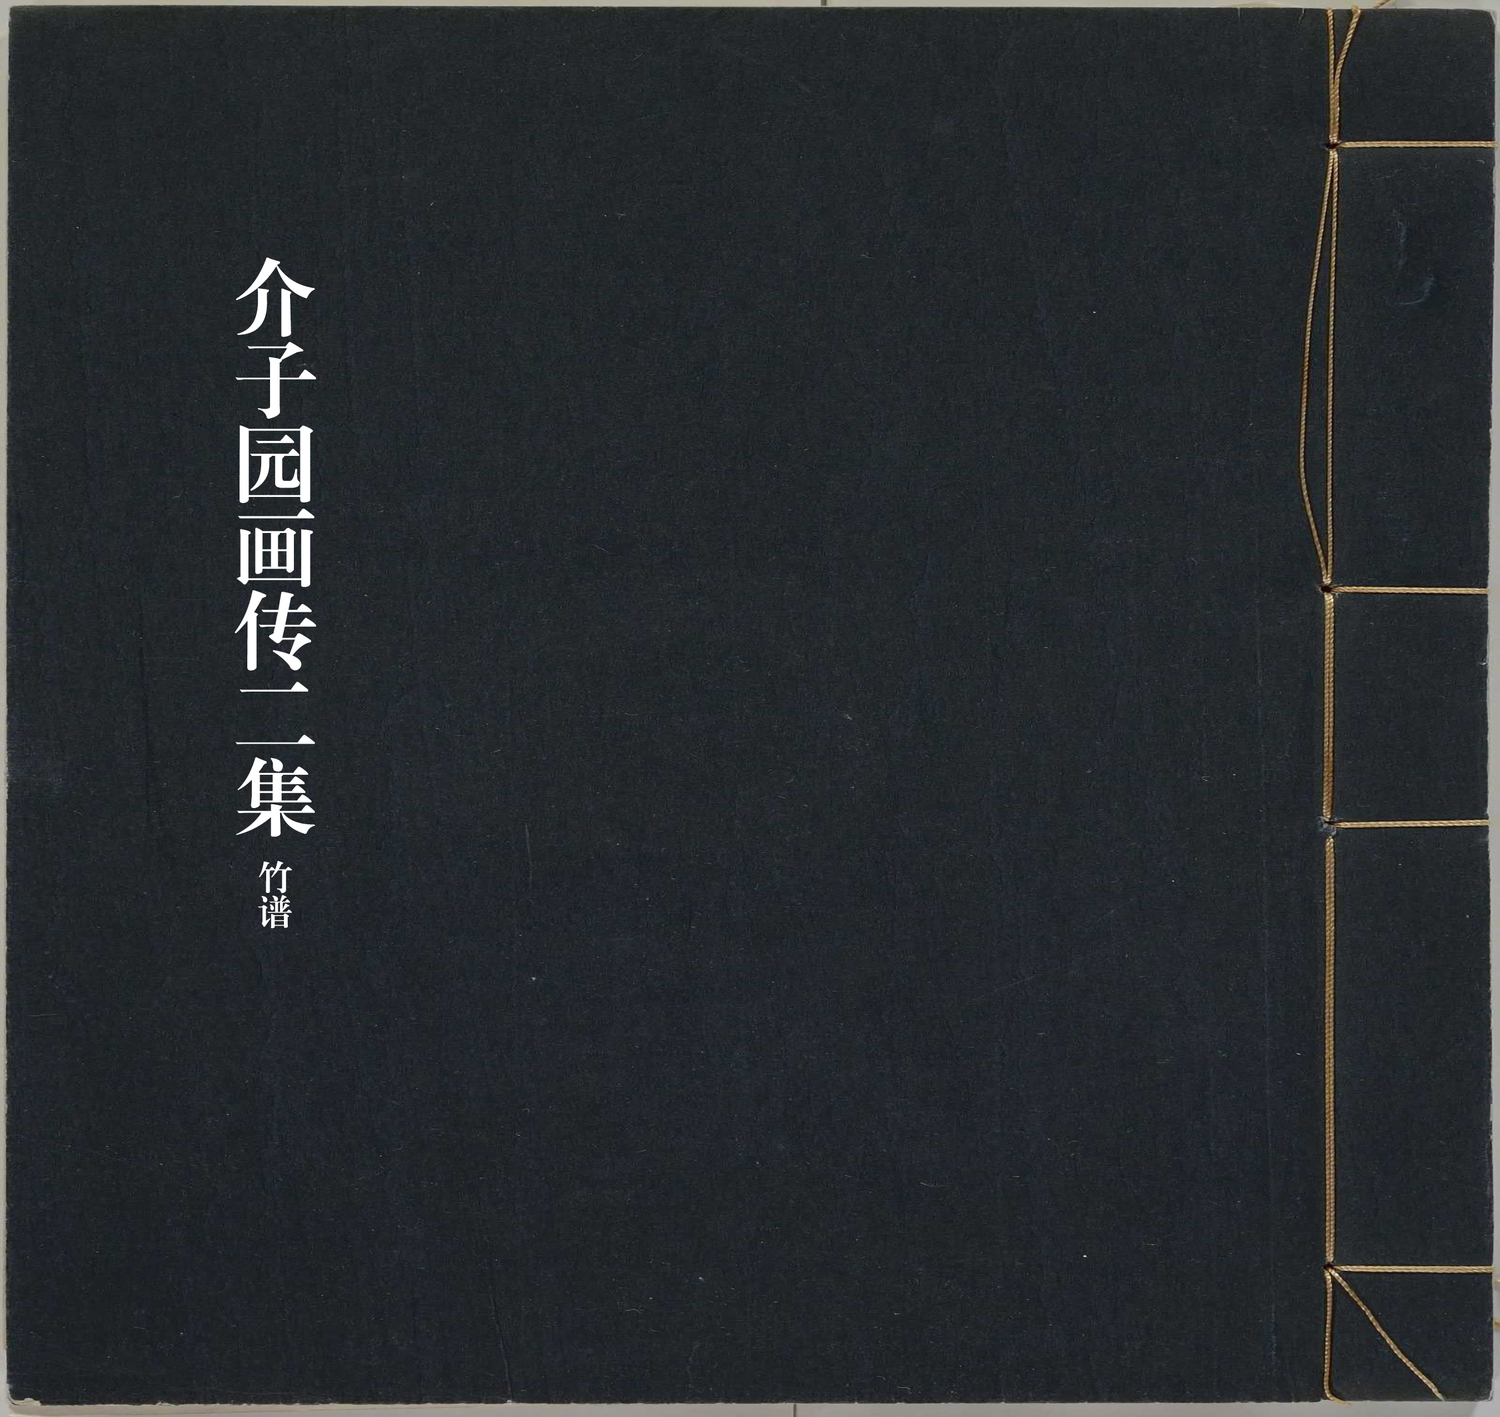 介子园画传二集
竹谱